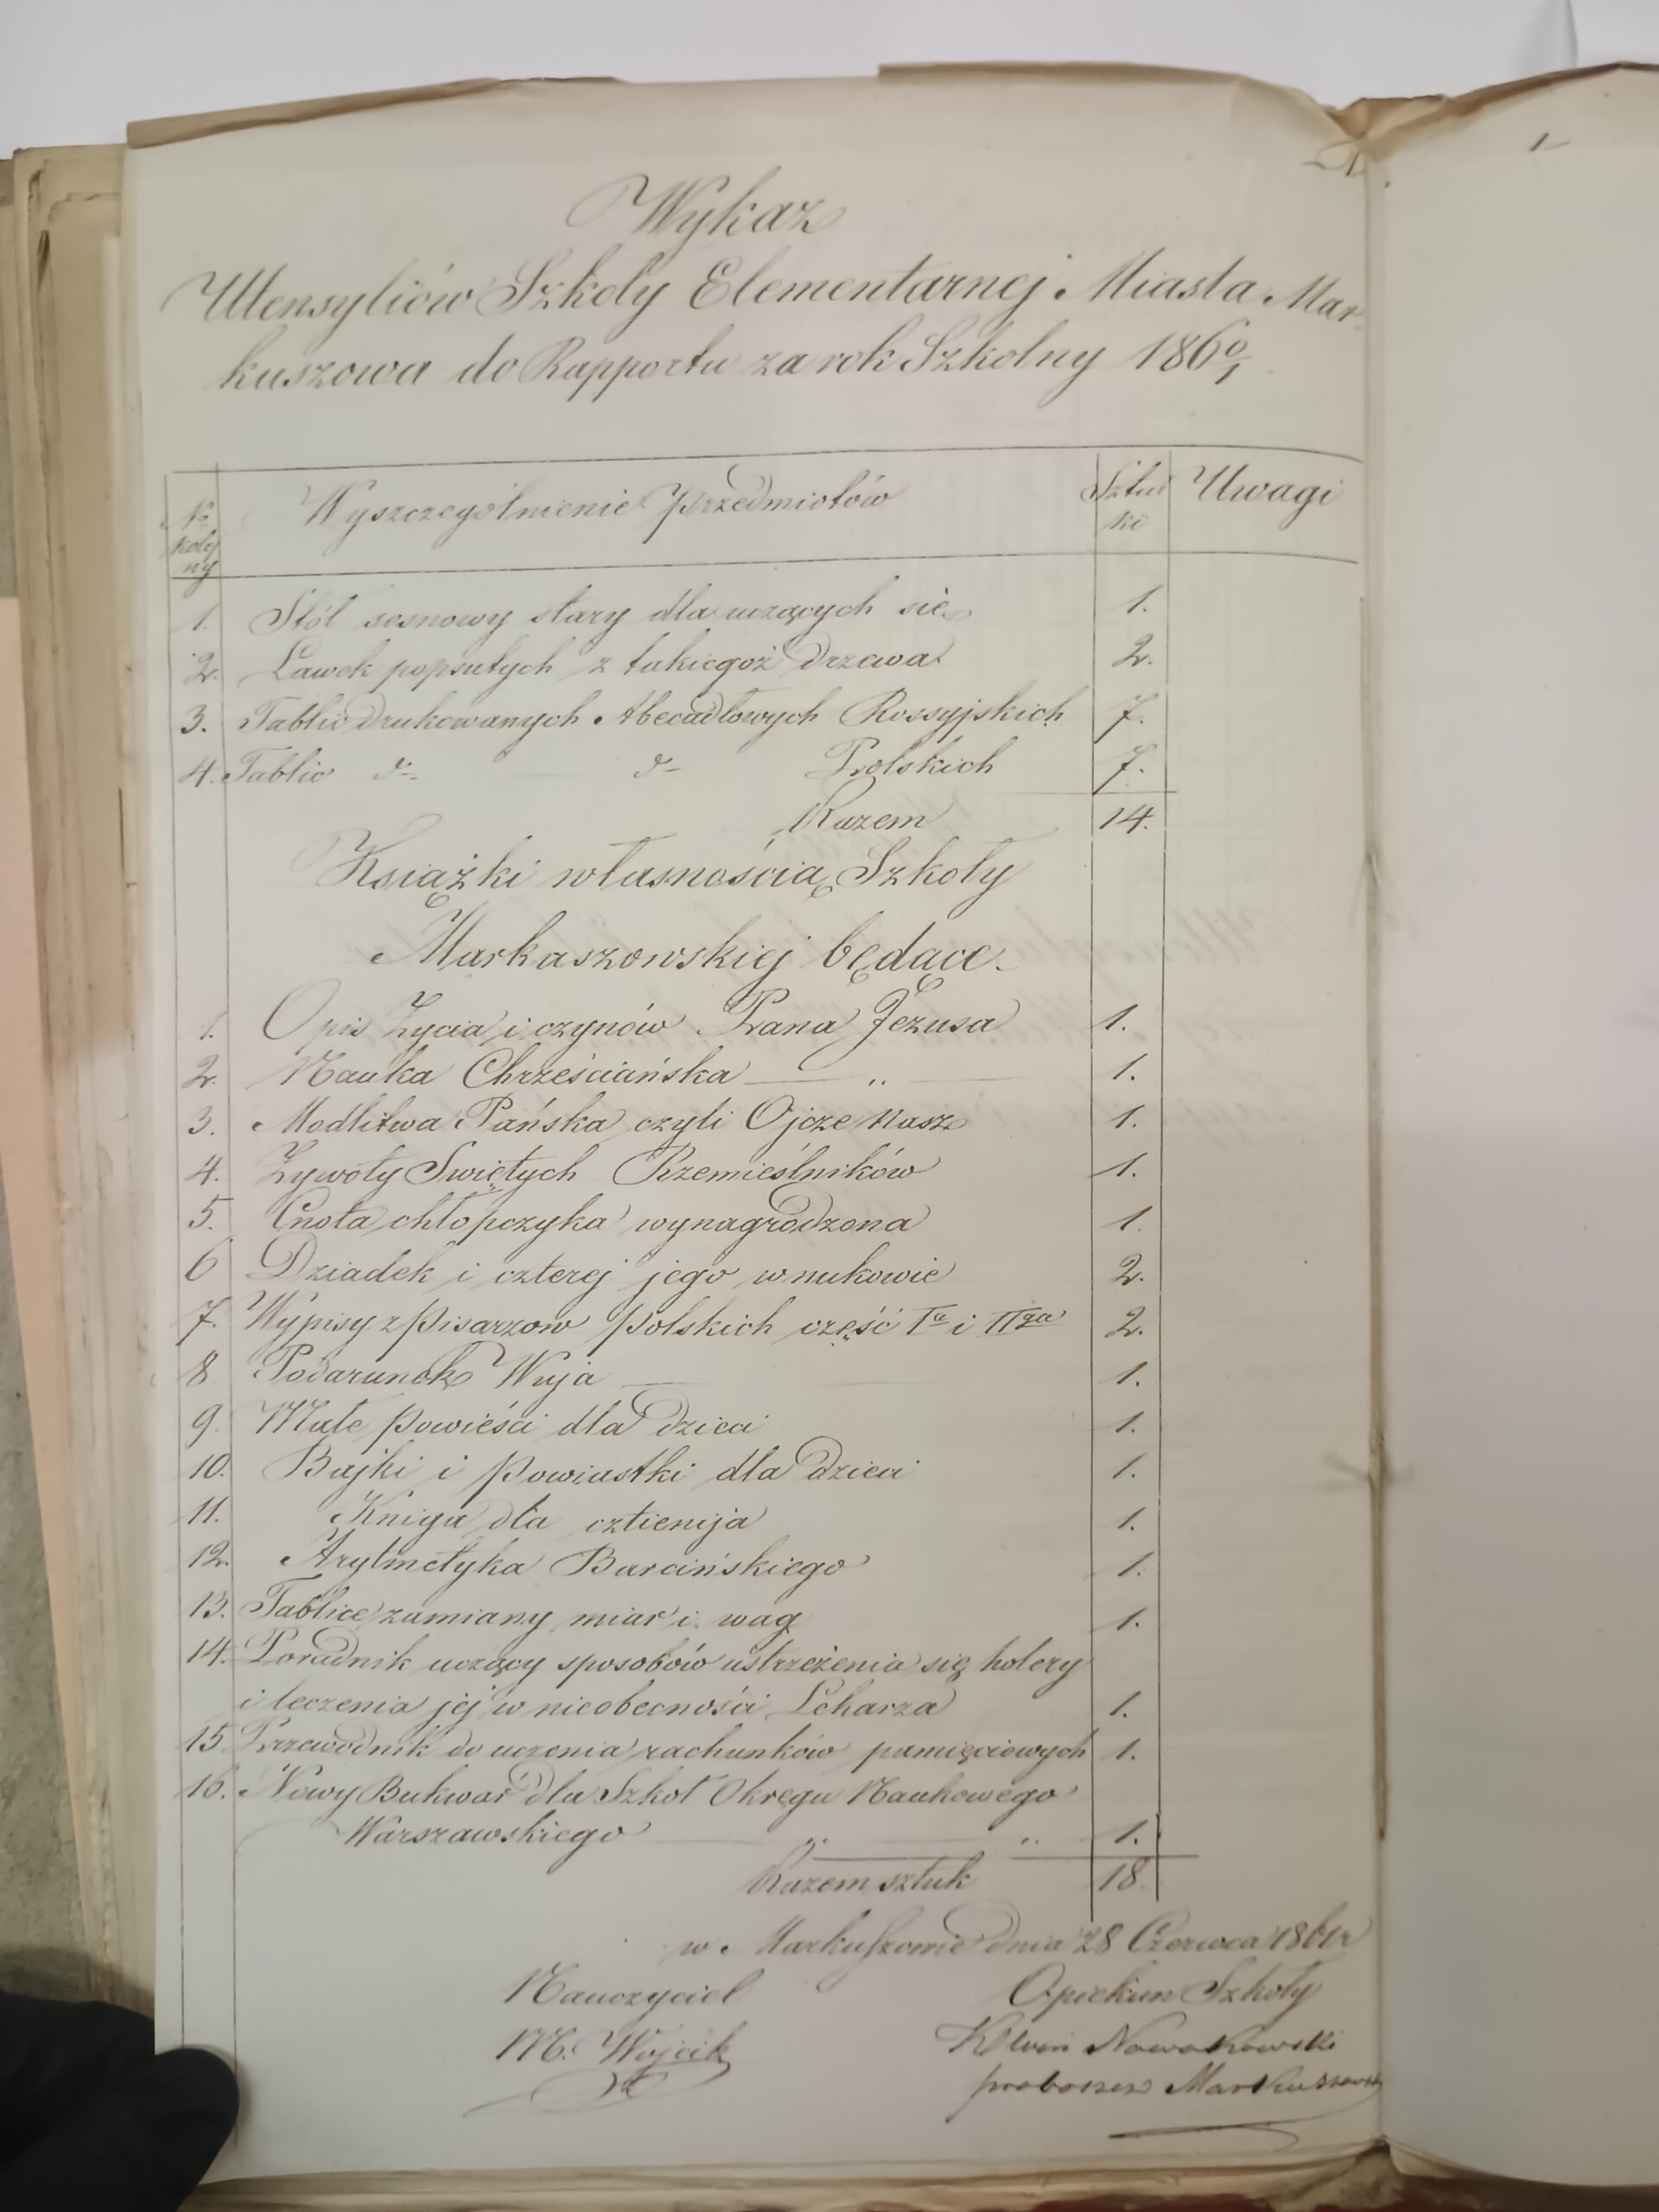 Wykaz
Utensyliów Szkoły Elementarnej Miasta Mar-
kuszowa do Rapportu za rok Szkolny 1860/1
No kolejny Wyszczególnienie przedmiotów Sztuki Uwagi
1. Stół sosnowy stary dla uczących się 1.
2. Ławek popsutych z takiegoż drzewa 2.
3. Tablic drukowanych Abecadłowych Rossyjskich 7.
4. Tablic d- d- Polskich 7.
Razem 14.
Książki własnością Szkoły
Markuszowskiej będące.
1. Opis Życia i czynów Pana Jezusa 1.
2. Nauka Chrześciańska — „ — 1.
3. Modlitwa Pańska czyli Ojcze nasz 1.
4. Żywoty Swiętych Rzemieślników 1.
5. Cnota chłopczyka wynagrodzona 1.
6 Dziadek i czterej jego wnukowie 2.
7. Wypisy z Pisarzow polskich część Ia i IIga 2.
8 Podarunek Wuja — 1.
9. Małe powieści dla dzieci 1.
10. Bajki i powiastki dla dzieci 1.
11. Kniga dla cztienija 1.
12. Arytmetyka Barcińskiego 1.
13. Tablice zamiany miar i wag 1.
14. Poradnik uczący sposobów ustrzeżenia się holery
i leczenia jej w nieobecności Lekarza 1.
15 Przewodnik do uczenia rachunków pamięciowych 1.
16. Nowy Bukwar dla Szkoł Okręgu Naukowego
Warszawskiego — „ — „ 1.
Razem sztuk 18.
w Markuszowie dnia 28 Czerwca 1861 r
Nauczyciel Opiekun Szkoły
M. Wojcik Nowakowski
proboszcz Markuszowski